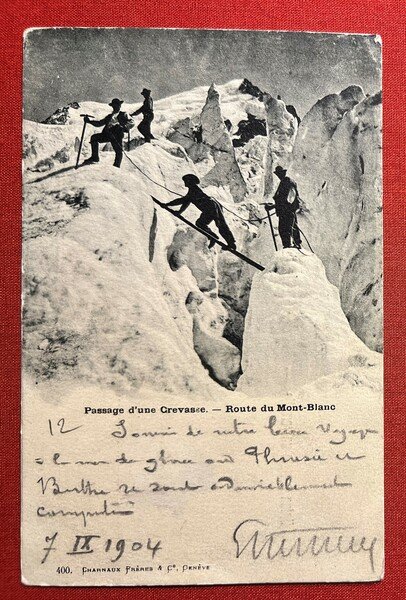 Passage d'une Crevasse. — Route du Mont-Blanc
12 Souvenir de notre beau voyage
à la mer de glace où Thérèse et
Berthe se sont admirablement
comporté
7 IX 1904
400. CHARNAUX FRÈRES & Cº, GENÈVE